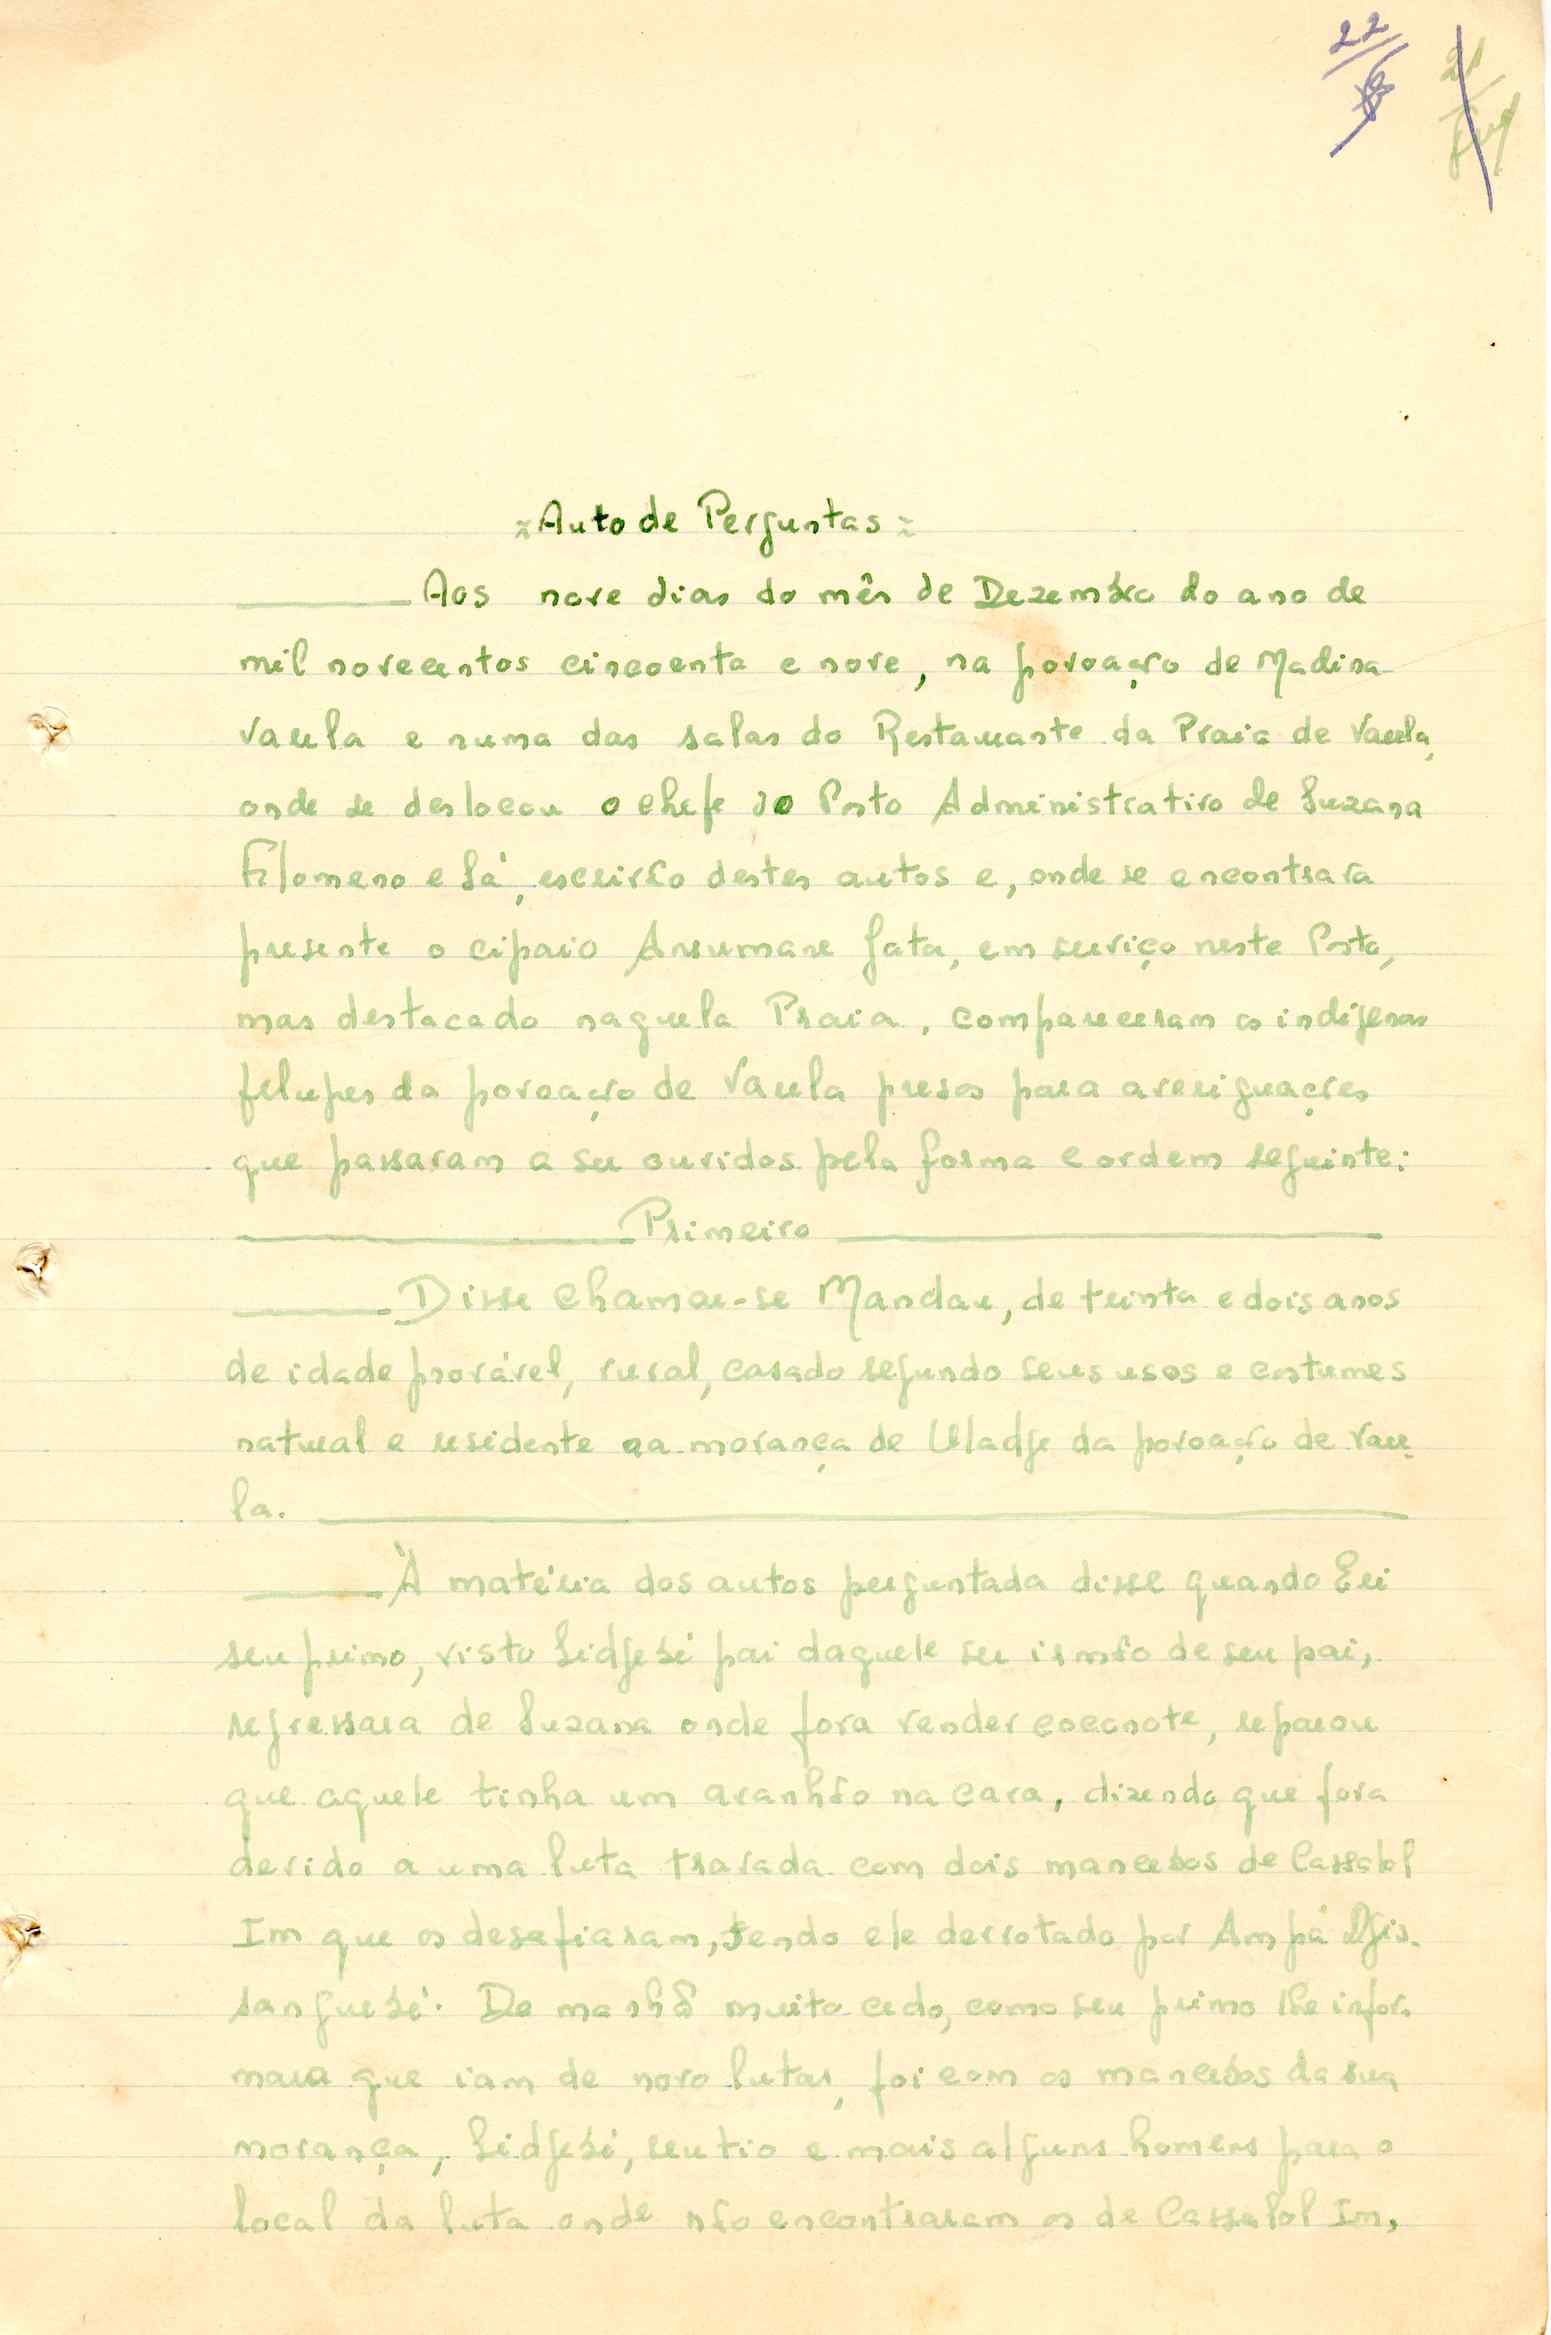 22
21
Auto de Perguntas
Aos nove dias do mês de Dezembro do ano de
mil novecentos cincoenta e nove, na povoação de Madina
Varela e numa das salas do Restaurante da Praia de Varela,
onde se deslocou o chefe do Posto Administrativo de Suzana
Filomeno e Sá, escrivão destes autos e, onde se encontrava
presente o cipaio Ansumane Sata, em serviço neste Posto,
mas destacado naquela Praia, compareceram os indígenas
felupes da povoação de Varela presos para averiguações
que passaram a ser ouvidos pela forma e ordem seguinte:
Primeiro
Disse chamar-se Mandau, de trinta e dois anos
de idade provável, rural, casado segundo seus usos e costumes
natural e residente na morança de Uladje da povoação de Vare-
la.
À matéria dos autos perguntada disse quando Eri
seu primo, visto Sidjebé pai daquele ser irmão de seu pai,
regressara de Suzana onde fora vender coconote, reparou
que aquele tinha um aranhão na cara, dizendo que fora
devido a uma luta travada com dois mancebos de Cassolol
Im que os desafiaram, sendo ele derrotado por Ampá Djis-
sanguebé. De manhã muito cedo, como seu primo lhe infor-
mara que iam de novo lutar, foi com os mancebos da sua
morança, Sidjebé, seu tio e mais alguns homens para o
local da luta onde não encontraram os de Cassolol Im,